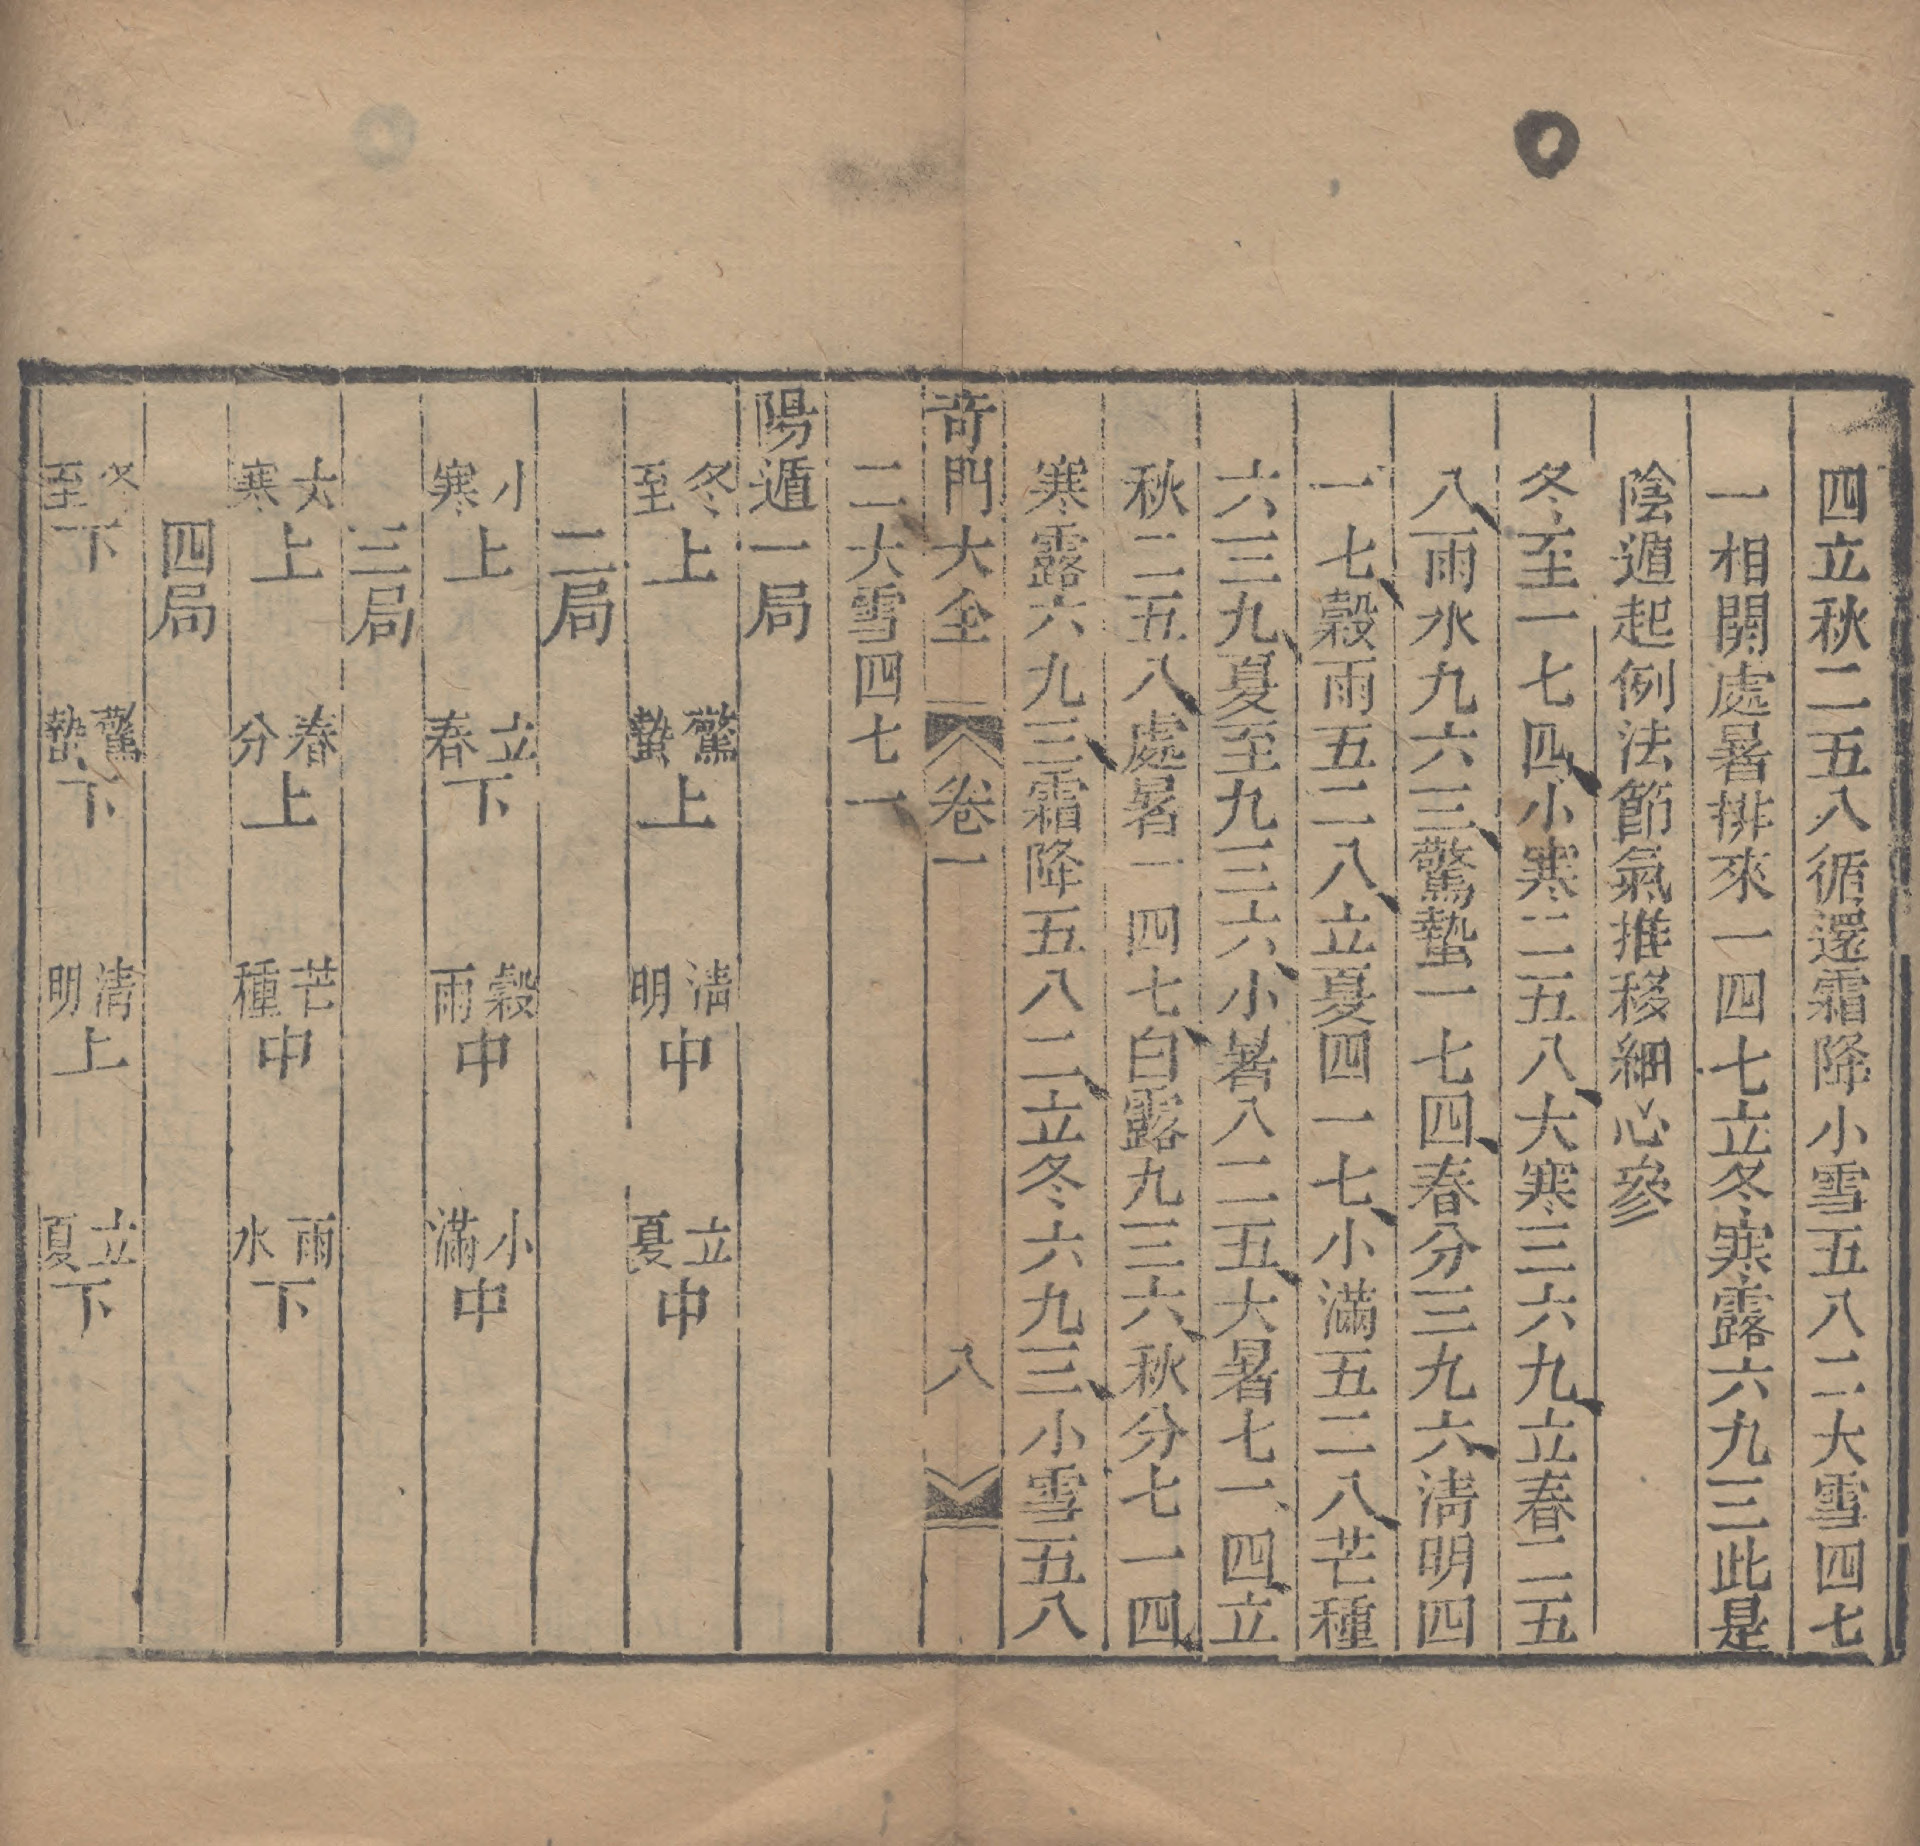 四立秋二五八循還霜降小雪五八二大雪四七
一相關處暑排來一四七立冬寒露六九三此是
陰遁起例法節氣推移細心參
冬至一七四小寒二五八大寒三六九立春二五
八雨水九六三驚蟄一七四春分三九六淸明四
一七穀雨五二八立夏四一七小滿五二八芒種
六三九夏至九三六小暑八二五大暑七一四立
秋二五八處暑一四七白露九三六秋分七一四
寒露六九三霜降五八二立冬六九三小雪五八
奇門大全 卷一 八
二大雪四七一
陽遁一局
冬至上 驚蟄上 淸明中 立夏中
二局
小寒上 立春下 穀雨中 小滿中
三局
大寒上 春分上 芒種中 雨水下
四局
冬至下 驚蟄下 淸明上 立夏下